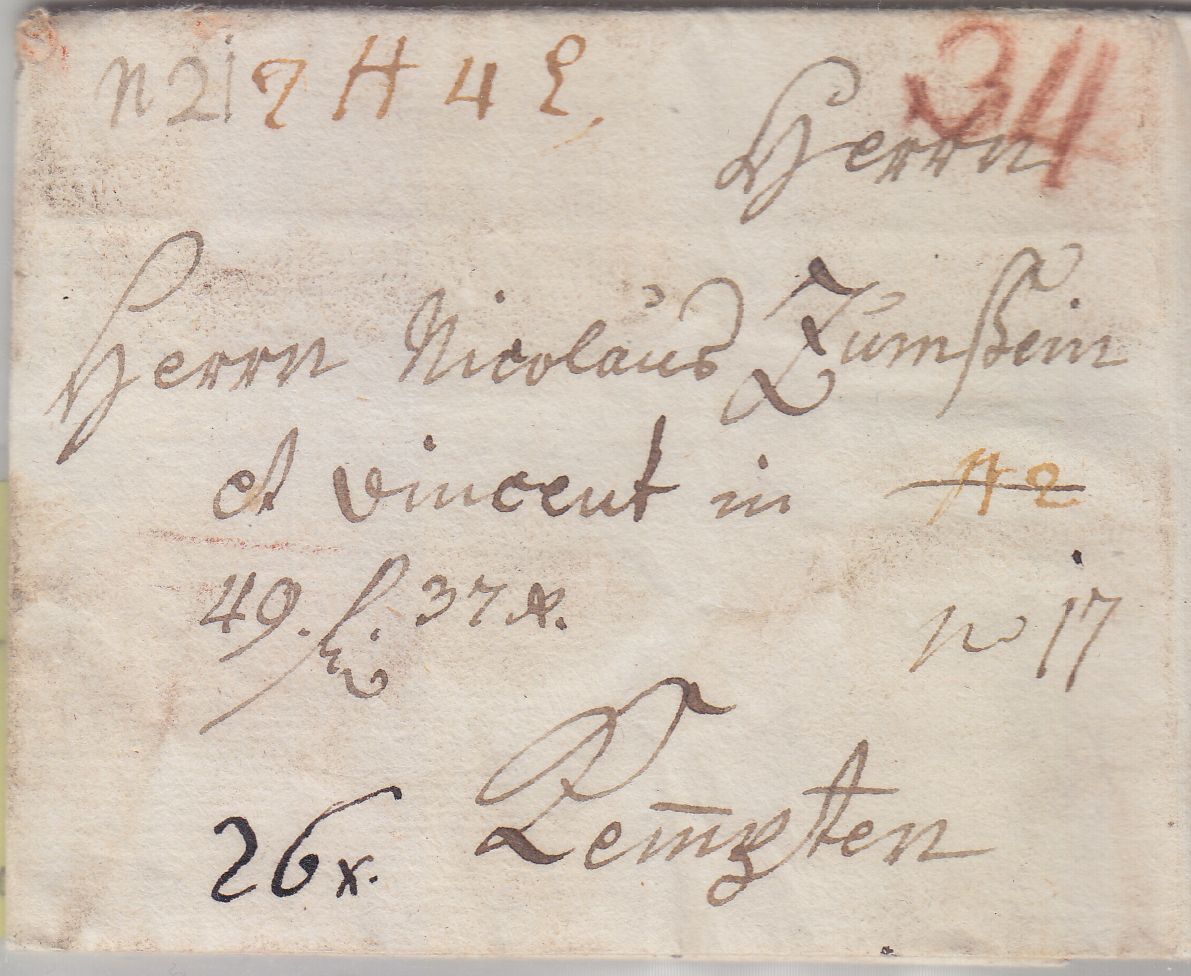 n 21 7 H 4 34
Herrn
Herrn Nicolaus Zumstein
et Vincent in H 2
49. f 37 x. no 17
Kempten
26 x.